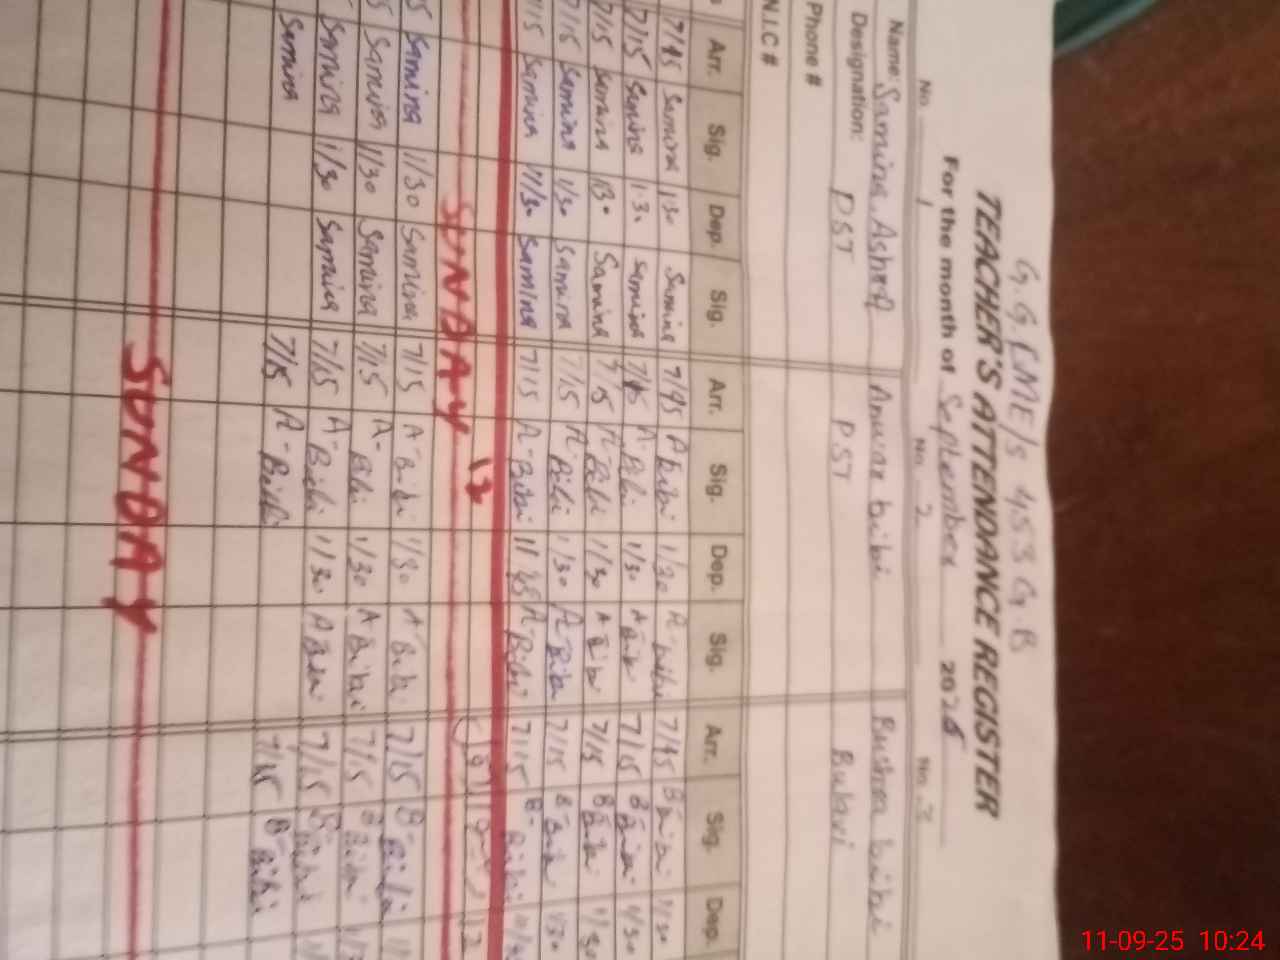 G.G.CME/S 453 G.B
TEACHER'S ATTENDANCE REGISTER
For the month of September 2025
No. 1 No. 2 No. 3
Name: Samina Ashraf Anwar bibi Bushra bibi
Designation: PST PST Bulavi
Phone #
N.I.C #
Arr. Sig. Dep. Sig. Arr. Sig. Dep. Sig. Arr. Sig. Dep.
7/45 Samina 1:30 Samina 7/45 A bibi 1/30 A-bibi 7/45 B bibi 1/30
7/15 Samina 1:30 Samina 7/15 A-Bibi 1/30 A Bibi 7/15 B Bibi 1/30
7/15 Samina 1:30 Samina 7/15 A-Bibi 1/30 A Bibi 7/15 B Bibi 1/30
7/15 Samina 1/30 Samina 7/15 A-Bibi 1/30 A-Bibi 7/15 B-Bibi 1/30
7/15 Samina 11/30 Samina 7/15 A-Bibi 11 A-Bibi 7/15 B-Bibi
12
SUNDAY
Samina 1/30 Samina 7/15 A-Bibi 1/30 A-Bibi 7/15 B-Bibi
Samina 1/30 Samina 7/15 A-Bibi 1/30 A Bibi 7/15 B Bibi
Samina 1/30 Samina 7/15 A-Bibi 1/30 A Bibi 7/15 B-Bibi
Samina 7/15 A-Bibi 7/15 B-Bibi
SUNDAY
11-09-25 10:24